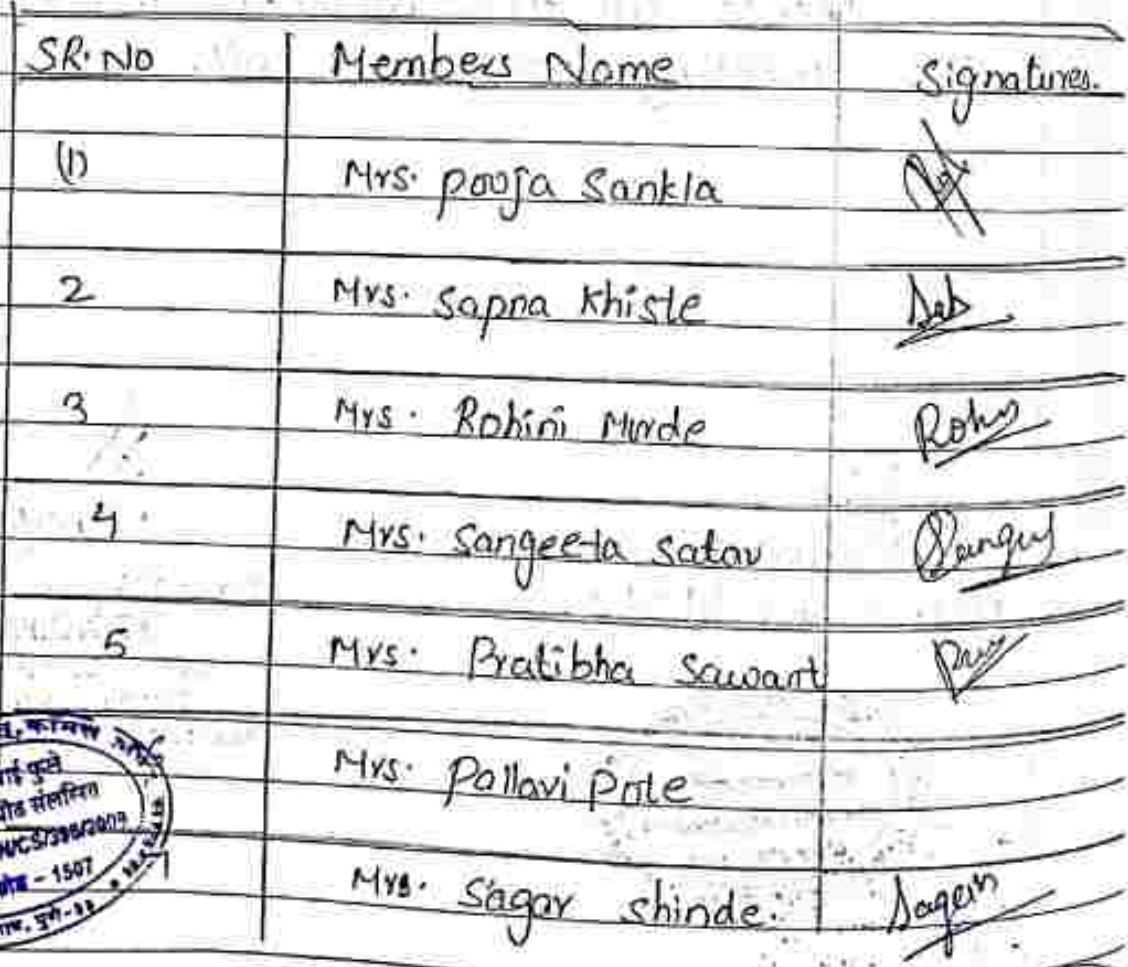 SR. No Members Name Signatures.
(1) Mrs. Pooja Sankla
2 Mrs. Sapna Khiste
3 Mrs. Rohini Murde Rohi
4 Mrs. Sangeeta Satav
5 Mrs. Pratibha Sawant
Mrs. Pallavi Pole
Mrs. Sagar Shinde.
फुले
- 1507